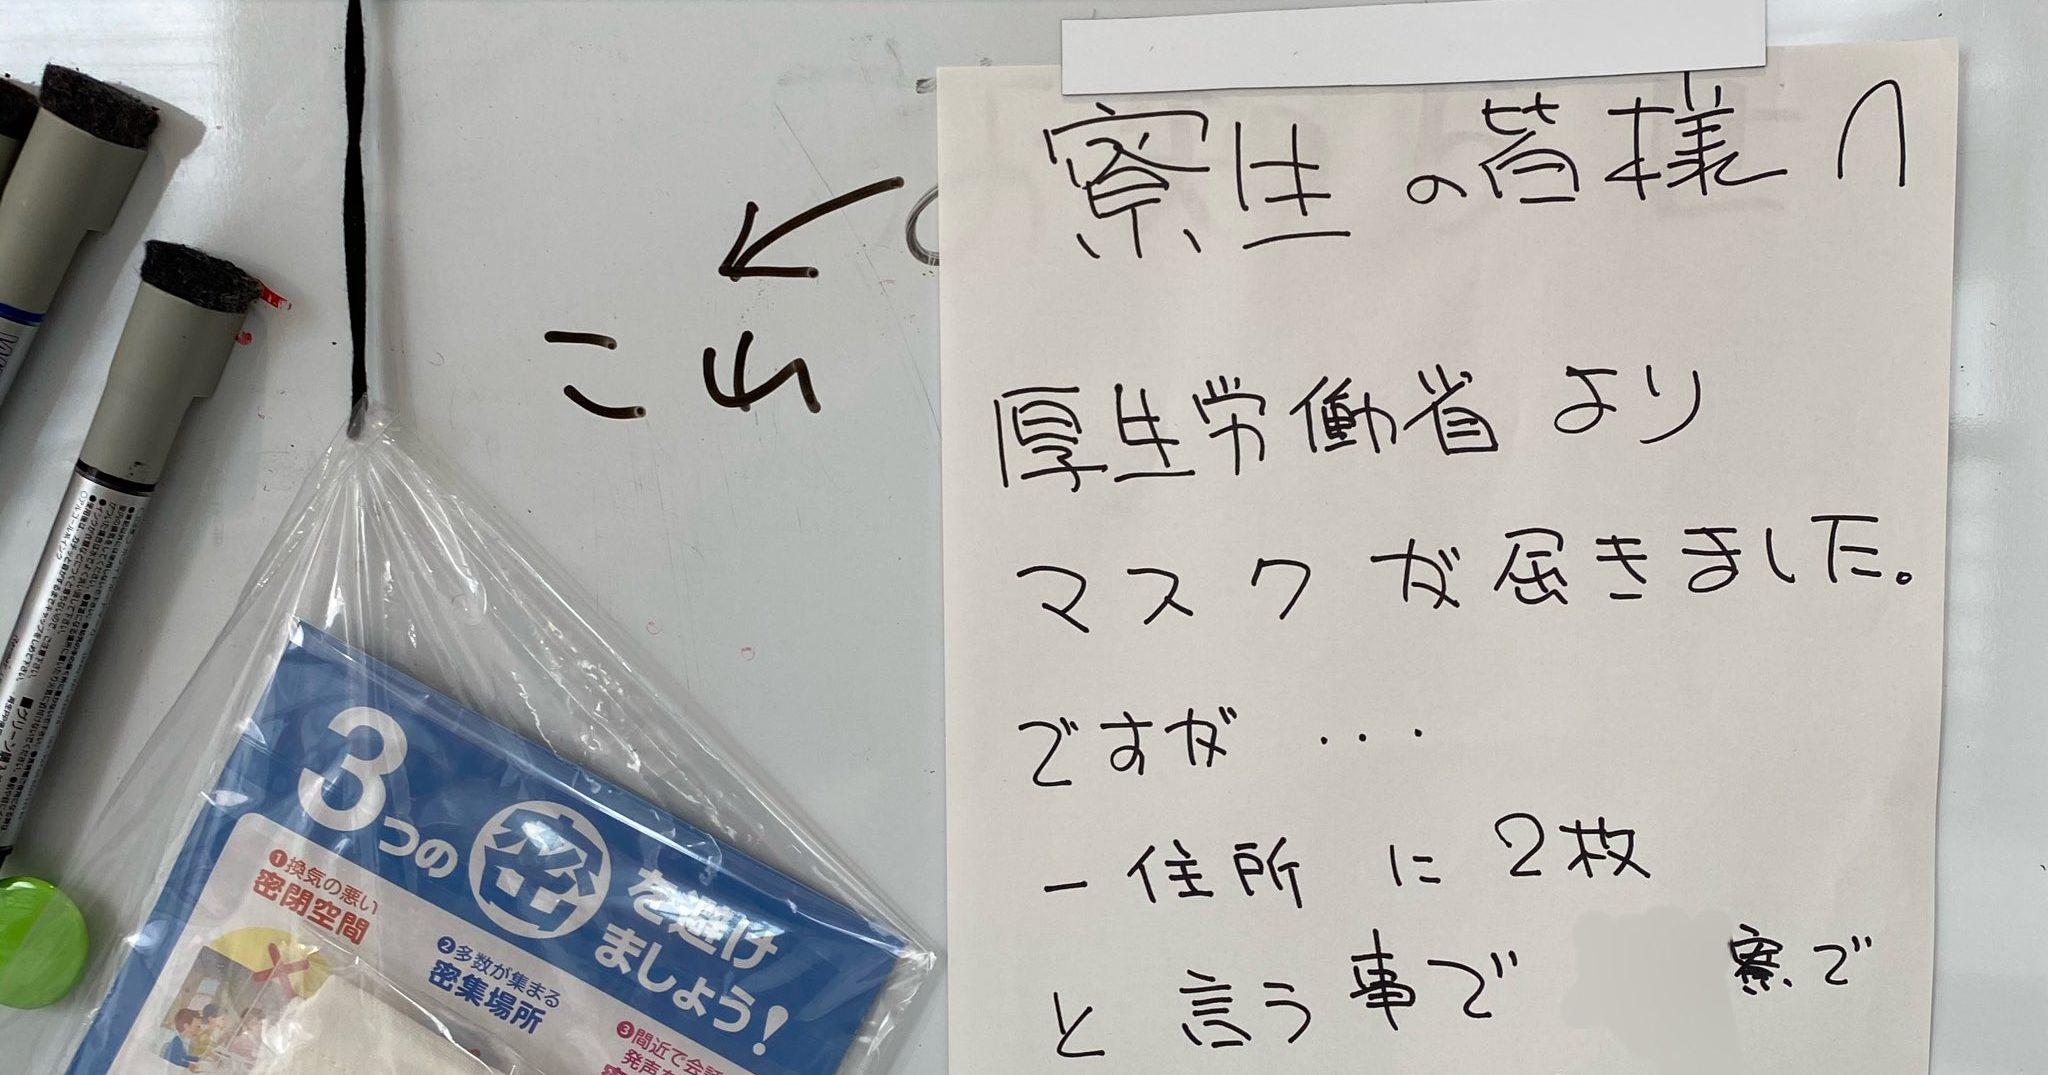 寮生の皆様へ
厚生労働省より
マスクが届きました。
ですが・・・
一住所に2枚
と言う事で 寮で
これ
3つの密を避け
ましょう!
❶換気の悪い
密閉空間
❷多数が集まる
密集場所
❸間近で会話
発声